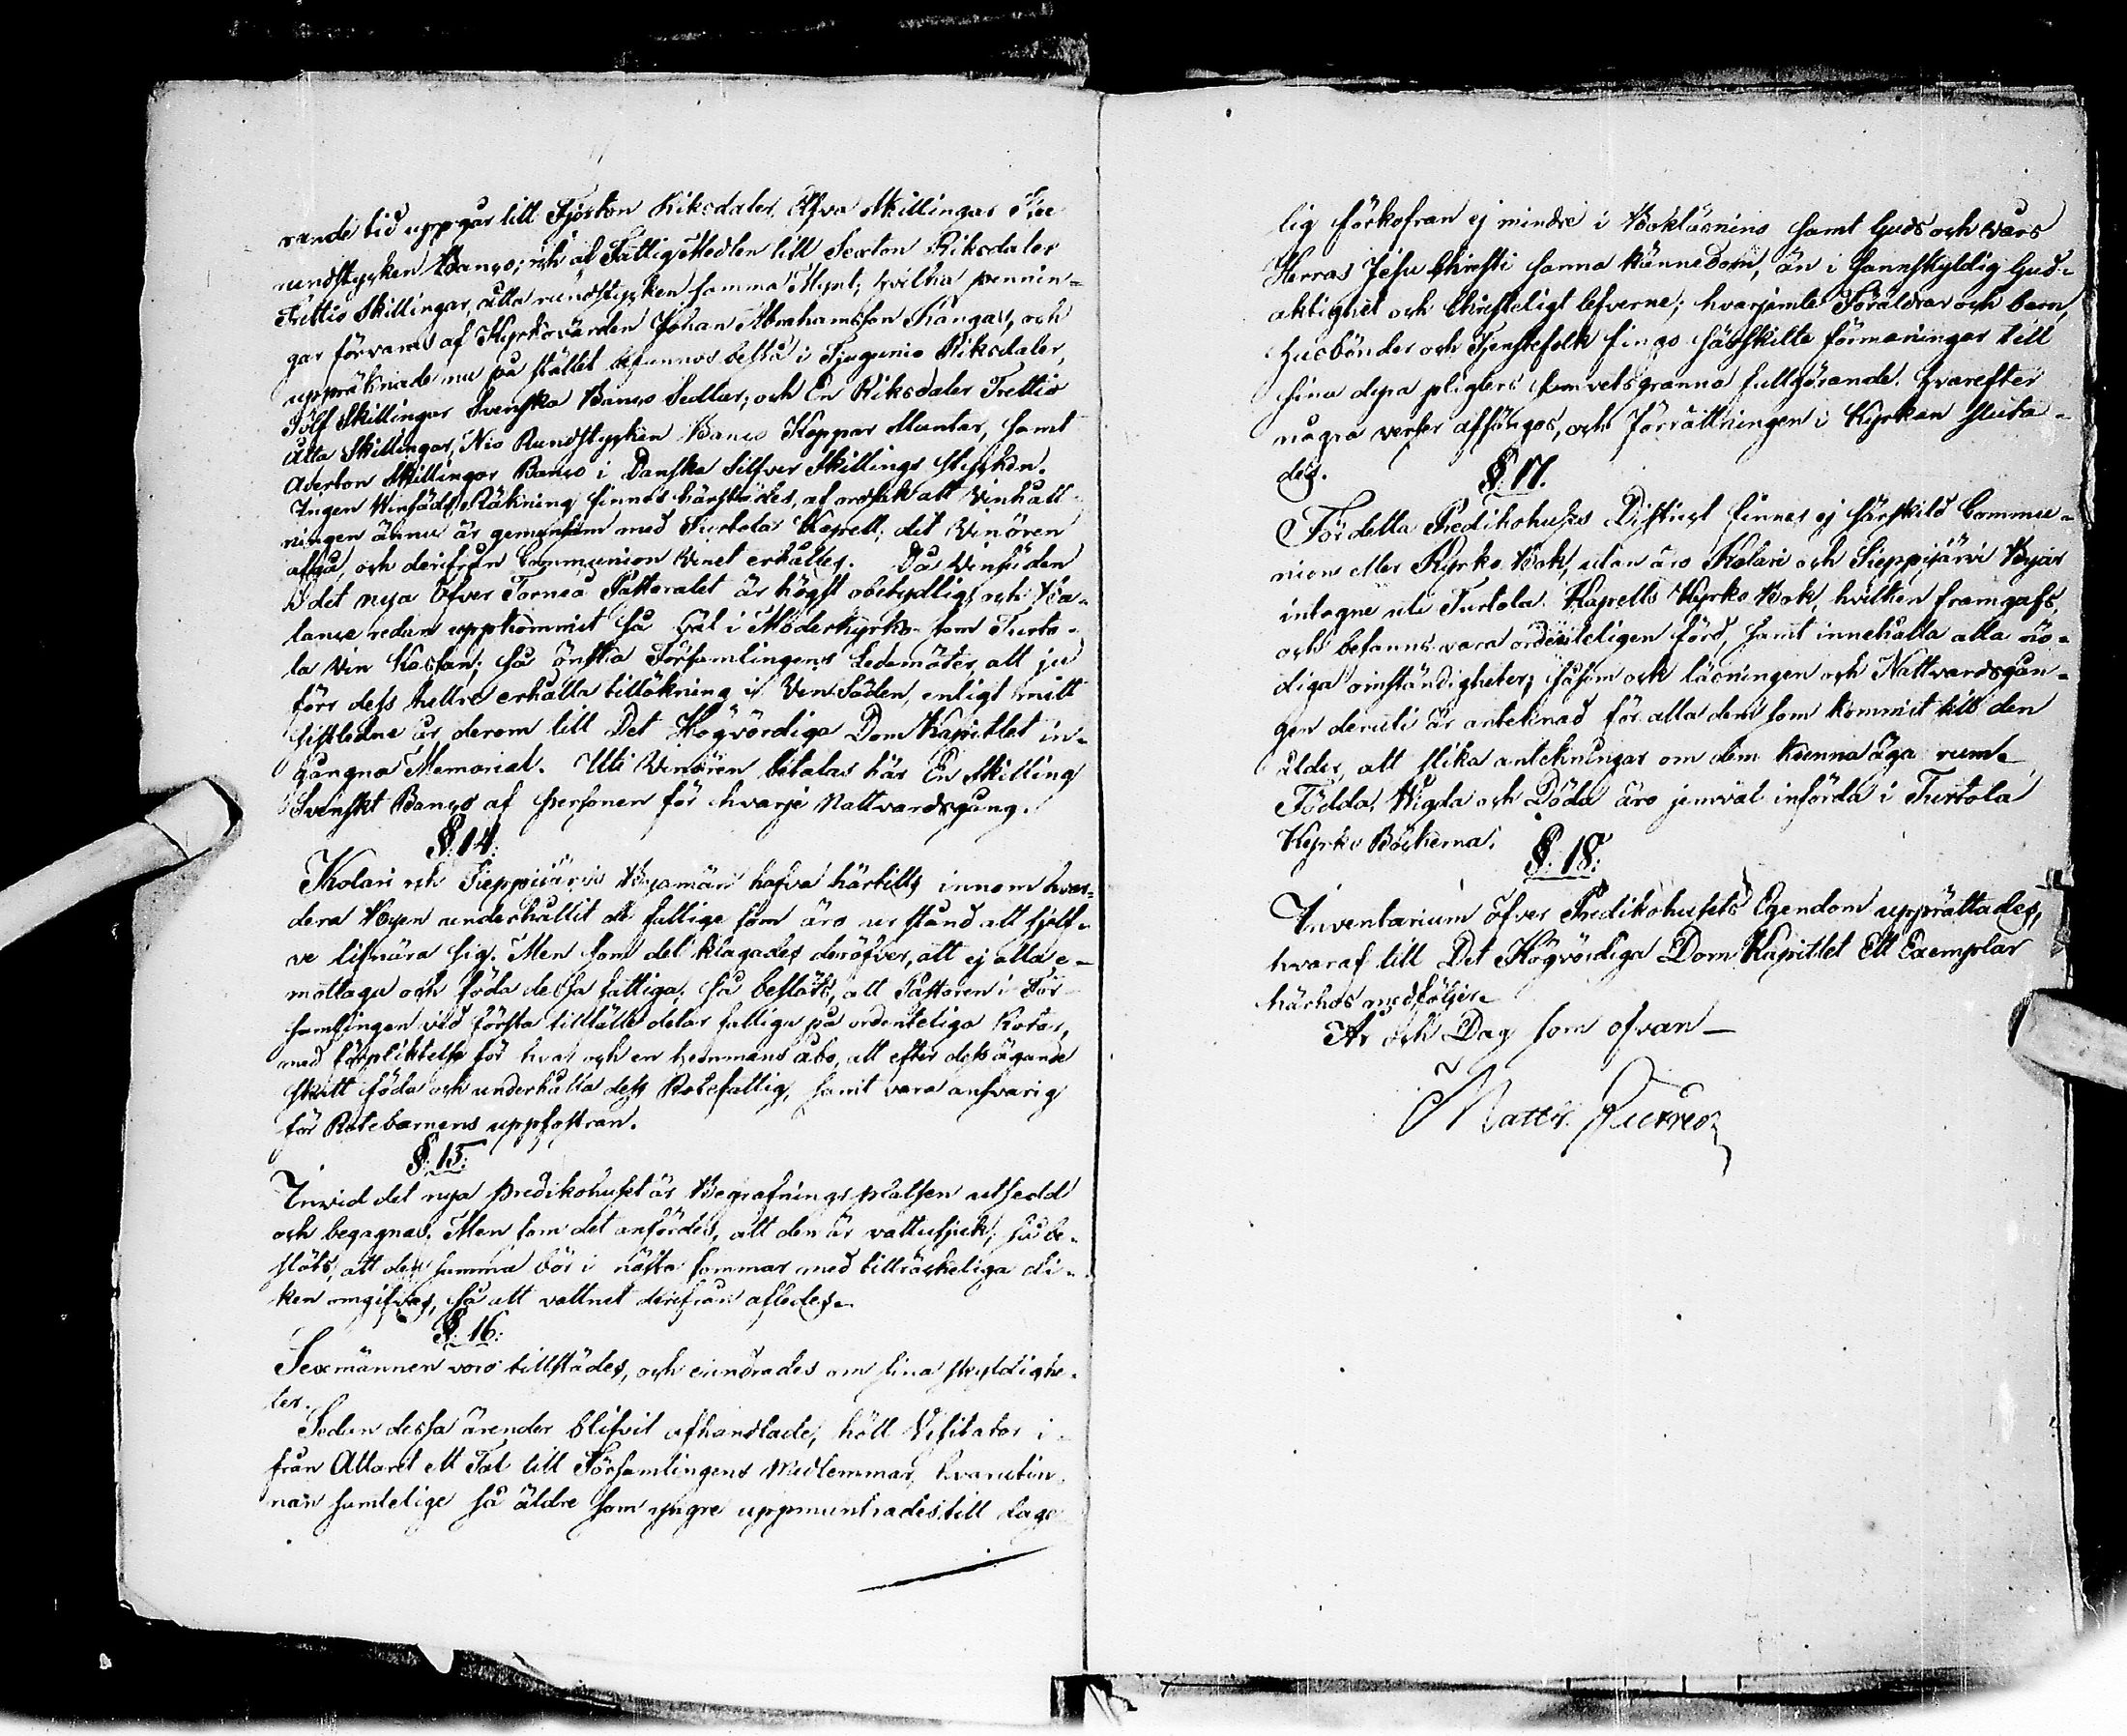 rande tid uppgår till Fjorton Riksdaler, Elfva Skillingar Tre
rundstycken Banco; och af Fattig Medlen till Sexton Riksdaler
Trettio Skillingar, åtta rundstycken samma Mynt; hvilka pennin-
gar förvaras af Kyrkovärden Johan Abrahamsson Kangas, och
uppräknade nu på stället befunnos bestå i Tjugunio Riksdaler,
Tolf Skillingar Svenska Banco Sedlar; och En Riksdaler Trettio
åtta Skillingar, Nio Rundstycken Banco Koppar Muntar, samt
Aderton Skillingar Banco i Danska Silfver Skillings stycken.
Ingen Vinsäds Räkning finnes härstädes, af orsak att Vinhåll
ningen ännu är gemensam med Turtola Kapell; dit Vinören
afgå, och derifrån Communion Vinet erhålles. Då Vinsäden
i det nya Öfver Torneå Pastoratet är högst obetydlig och Ba-
lance redan uppkommit så väl i Moderkyrko- som Turto-
la Vin Kassan; så önska Församlingens Ledamöter, att ju
förr dess hellre erhålla tillökning i Vin Säden, enligt mitt
sistledne år derom till Det Högvördiga Dom Kapitlet in-
gångna Memorial. Uti Vinören betalas här En Skilling
Svenskt Banco af personen för hvarje Nattvardsgång.
§. 14:
Kolari och Sieppijärvi Byamän hafva härtills innom hvar-
dera Byen underhållit de fattige som äro ur stånd att sjelf-
ve lifnära sig. Men som det klagades deröfver, att ej alla e-
mottaga och föda dessa fattiga; så beslöts, att Pastoren i För
samlingen vid första tillfälle delar fattiga på ordenteliga Rotar,
med förpliktelse för hvar och en hemmans åbo, att efter dess ägande
skatt föda och underhålla dess Rotefattig, samt vara ansvarig
för Rotebarnens uppfostran.
§. 15:
Invid det nya predikohuset är Begrafnings platsen utsedd
och begagnas. Men som det anfördes, att den är vattusjuk; så be-
slöts, att den samma bör i nästa sommar med tillräckeliga di-
ken omgifvas, så att vattnet derifrån afledes.
§. 16:
Sexmännen voro tillstädes, och erindrades om sina skyldighe-
ter.
Sedan dessa ärender blifvit afhandlade, höll Visitator i-
från Altaret ett Tal till Församlingens Medlemmar, hvarutin-
nan samtelige så äldre som yngre uppmuntrades till dage
lig förkofran ej mindre i Bokläsning samt Guds och vårs
Herras Jesu Christi sanna kännedom, än i sannskyldig Gud-
aktighet och Christeligt lefverne; hvarjemte Föräldrar och barn,
husbönder och Tjenstefolk fingo särskilte förmaningar till
sina dyra pligters samvetsgranna fullgörande. Hvarefter
några verser afsöngos, och Förrättningen i Kyrkan sluta-
des.
§. 17.
För detta Predikohuses District finnes ej särskild Commu-
nion eller Kyrko Bok, utan äro Kolari och Sieppijärvi Byar
intagne uti Turtola Kapells Kyrko Bok, hvilken framgafs,
och befanns vara ordenteligen förd, samt innehålla alla nö-
diga omständigheter; såsom ock läsningen och Nattvardsgån-
gen deruti är antecknad för alla dem som kommit till den
ålder, att slika antekningar om dem kunna äga rum.
Födda, Vigda och Döda äro jemväl införda i Turtola
Kyrko Böckerna.
§. 18:
Inventarium öfver Predikohusets Egendom upprättades,
hvaraf till Det Högvördiga Dom Kapitlet Ett Exemplar
härhos medföljer.
År och Dag som ofvan—
Matth: